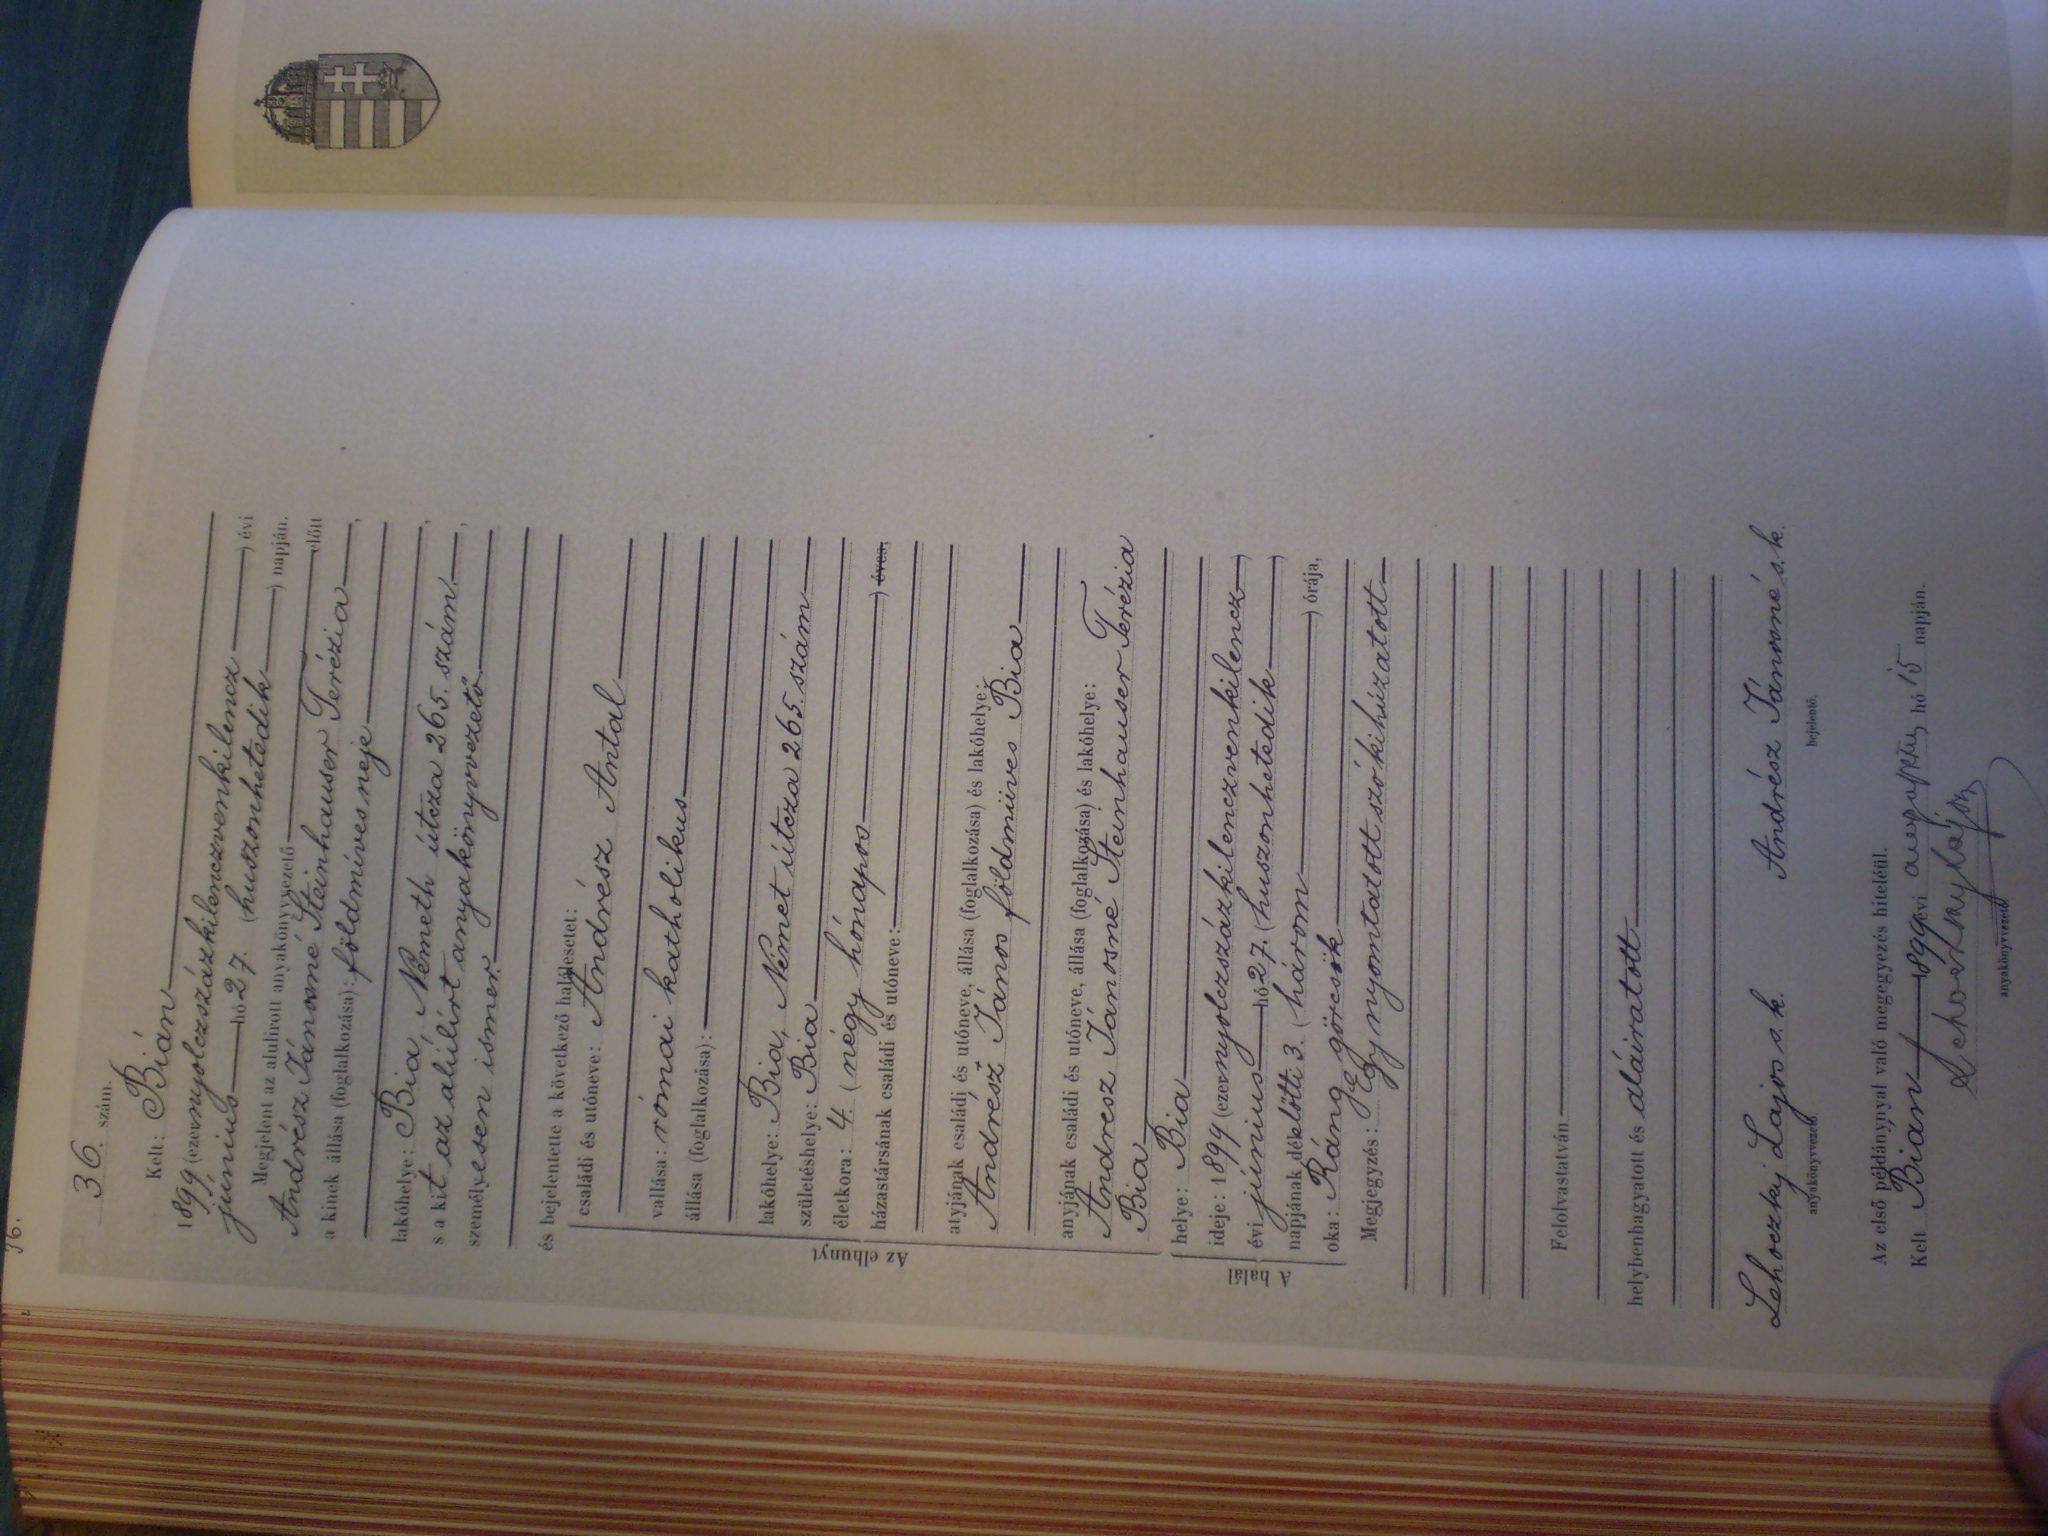 36.
36. szám.
Kelt: Bián
1899 (ezernyolczszázkilenczvenkilencz) évi
június hó 27. (huszonhetedik) napján.
Megjelent az alulirott anyakönyvvezető előtt
Andrész Jánosné Steinhauser Terézia,
a kinek állása (foglalkozása): földmíves neje
lakóhelye: Bia, Németh útcza 265. szám,
s a kit az alúlírt anyakönyvvezető
személyesen ismer.
és bejelentette a következő halálesetet:
Az elhunyt
családi és utóneve: Andrész Antal
vallása: római katholikus
állása (foglalkozása):
lakóhelye: Bia, Német útcza 265. szám
születéshelye: Bia
életkora: 4. (négy hónapos) éves,
házastársának családi és utóneve:
atyjának családi és utóneve, állása (foglalkozása) és lakóhelye:
Andrész János földmíves Bia
anyjának családi és utóneve, állása (foglalkozása) és lakóhelye:
Andrész Jánosné Steinhauser Terézia
Bia
A halál
helye: Bia
ideje: 1899 (ezernyolczszázkilenczvenkilencz)
évi június hó 27. (huszonhetedik)
napjának délelőtti 3. (három) órája,
oka: Ráng görcsök
Megjegyzés: Egy nyomtatott szó kihúzatott
Felolvastatván
helybenhagyatott és aláiratott.
Lehoczky Lajos s. k. Andrész Jánosné s. k.
anyakönyvvezető. bejelentő.
Az első példánynyal való megegyezés hiteléül.
Kelt Bián 1899 évi augusztus hó 15 napján.
Lehoczky Lajos
anyakönyvvezető